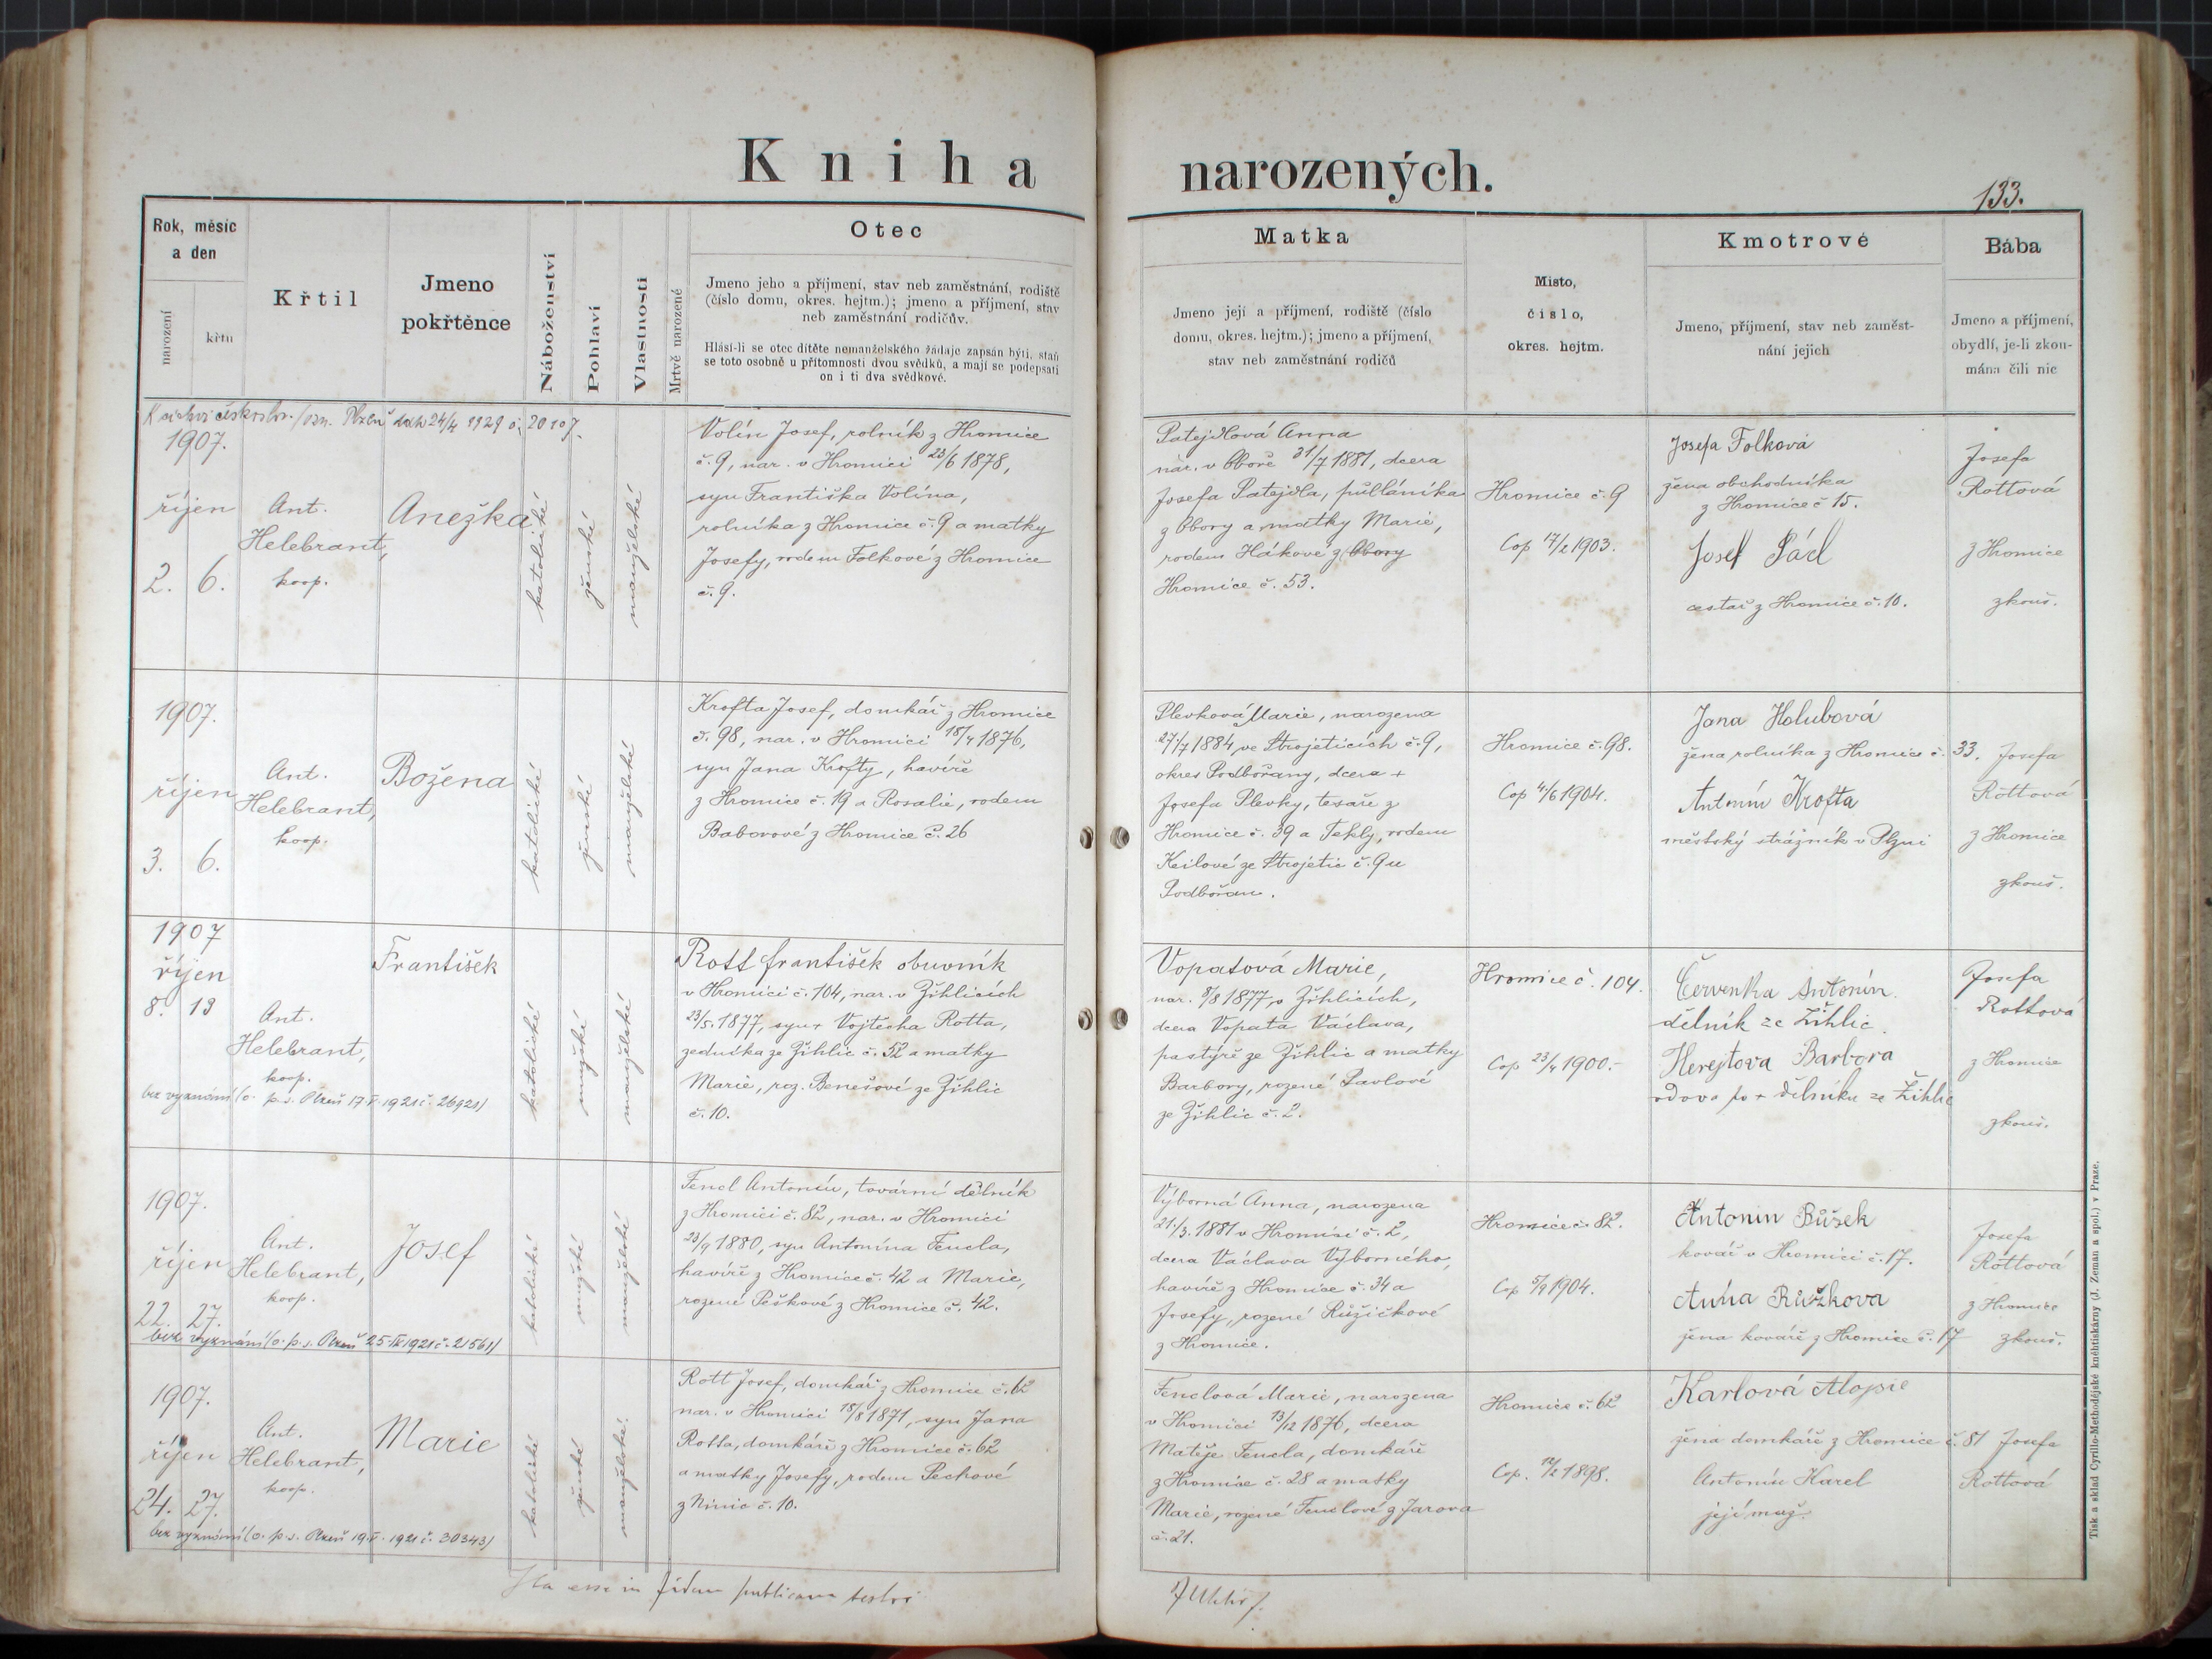 Kniha narozených.
133.
Rok, měsíc
a den
narození
křtu
Křtil
Jmeno
pokřtěnce
Náboženství
Pohlaví
Vlastnosti
Mrtvě narozené
Otec
Jmeno jeho a příjmení, stav neb zaměstnání, rodiště
(číslo domu, okres. hejtm.); jmeno a příjmení, stav
neb zaměstnání rodičův.
Hlásí-li se otec dítěte nemanželského žádaje zapsán býti, staň
se toto osobně u přítomnosti dvou svědků, a mají se podepsati
on i ti dva svědkové.
Matka
Jmeno její a příjmení, rodiště (číslo
domu, okres. hejtm.); jmeno a příjmení,
stav neb zaměstnání rodičů
Místo,
číslo,
okres. hejtm.
Kmotrové
Jmeno, příjmení, stav neb zaměst-
nání jejich
Bába
Jmeno a příjmení,
obydlí, je-li zkou-
mána čili nic
K církvi českoslov. /ozn. Plzeň 24/4 1929 č. 20107.
1907.
říjen
2. 6.
Ant.
Helebrant,
koop.
Anežka
katolické
ženské
manželské
Volín Josef, rolník z Hromice
č. 9, nar. v Hromici 23/6 1878,
syn Františka Volína,
rolníka z Hromice č. 9 a matky
Josefy, rodem Folkové z Hromice
č. 9.
Patejdlová Anna
nar. v Oboře 31/7 1881, dcera
Josefa Patejdla, půlláníka
z Obory a matky Marie,
rodem Hákové z Obory
Hromice č. 53.
Hromice č. 9
Cop 17/2 1903.
Josefa Folková
žena obchodníka
z Hromice č 15.
Josef
cestař z Hromice č. 10.
Josefa
Rottová
z Hromice
zkouš.
1907.
říjen
3. 6.
Ant.
Helebrant,
koop.
Božena
katolické
ženské
manželské
Krofta Josef, domkář z Hromice
č. 98, nar. v Hromici 18/4 1876,
syn Jana Krofty, havíře
z Hromice č. 19 a Rosalie, rodem
Baborové z Hromice č. 26
Plevková Marie, narozena
27/7 1884 ve Strojeticích č. 9,
okres Podbořany, dcera +
Josefa Plevky, tesaře z
Hromice č. 39 a Tekly, rodem
Keilové ze Strojetic č. 9 u
Podbořan.
Hromice č. 98.
Cop 4/6 1904.
Jana Holubová
žena rolníka z Hromice č. 33.
Antonín Krofta
městský strážník v Plzni
Josefa
Rottová
z Hromice
zkouš.
1907
říjen
8. 13
Ant.
Helebrant,
koop.
bez vyznání (o. p. s. Plzeň 17.V.1921 č. 26921)
František
katolické
mužské
manželské
Rott františek obuvník
v Hromici č. 104, nar. v Žihlicích
23/5. 1877, syn + Vojtěcha Rotta,
zedníka ze Žihlic č. 52 a matky
Marie, roz. Benešové ze Žihlic
č. 10.
Vopatová Marie,
nar. 8/8 1877 v Žihlicích,
dcera Vopata Václava,
pastýře ze Žihlic a matky
Barbory, rozené Pavlové
ze Žihlic č. 2.
Hromice č. 104.
Cop 23/4 1900.-
Červenka Antonín.
dělník ze Žihlic.
Herejtova Barbora
vdova po + dělníku ze Žihlic
Josefa
Rottová
z Hromice
zkouš.
1907.
říjen
22. 27.
Ant.
Helebrant,
koop.
bez vyznání (o. p. s. Plzeň 25 IV 1921 č. 21561)
Josef
katolické
mužské
manželské
Fencl Antonín, tovární dělník
z Hromici č. 82, nar. v Hromici
23/9 1880, syn Antonína Fencla,
havíře z Hromice č. 42 a Marie,
rozené Peškové z Hromice č. 42.
Výborná Anna, narozena
21./3. 1881 v Hromici č. 2,
dcera Václava Výborného,
havíře z Hromice č. 34 a
Josefy, rozené Růžičkové
z Hromice.
Hromice č. 82.
Cop 5/9 1904.
Antonin Bůžek
kovář v Hromici č. 17.
Anna
žena kováře z Hromice č. 17
Josefa
Rottová
z Hromice
zkouš.
1907.
říjen
24. 27.
Ant.
Helebrant,
koop.
bez vyznání (o. p. s. Plzeň 19.V.1921 č. 30343)
Marie
katolické
ženské
manželské
Rott Josef, domkář z Hromice č. 62
nar. v Hromici 18/8 1871, syn Jana
Rotta, domkáře z Hromice č. 62
a matky Josefy, rodem Pechové
z Nínic č. 10.
Fenclová Marie, narozena
v Hromici 13/12 1876, dcera
Matěje Fencla, domkáře
z Hromice č. 28 a matky
Marie, rozené Fenclové z Jarova
č. 21.
Hromice č. 62
Cop. 12/2 1898.
Karlová Aloisie
žena domkáře z Hromice č. 81
Antonín Karel
její muž.
Josefa
Rottová
Ita esse in fidem publicam testor
Tisk a sklad Cyrillo-Methodějské knihtiskárny (J. Zeman a spol.) v Praze.